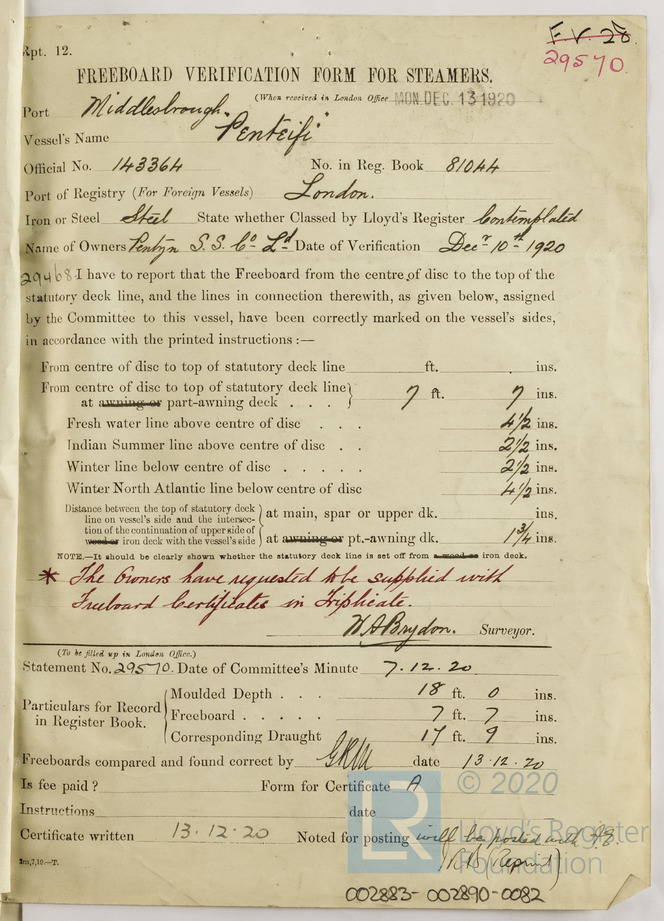 Rpt. 12.
F.V. 28.
29570.
FREEBOARD VERIFICATION FORM FOR STEAMERS.
(When received in London Office MON. DEC. 13 1920
Port Middlesbrough.
Vessel's Name "Penteifi"
Official No. 143364 No. in Reg. Book 81044
Port of Registry (For Foreign Vessels) London.
Iron or Steel Steel State whether Classed by Lloyd's Register Contemplated
Name of Owners Pentyn S.S. Co Ld Date of Verification Decr 10th 1920
29468 I have to report that the Freeboard from the centre of disc to the top of the
statutory deck line, and the lines in connection therewith, as given below, assigned
by the Committee to this vessel, have been correctly marked on the vessel's sides,
in accordance with the printed instructions :—
From centre of disc to top of statutory deck line ft. ins.
From centre of disc to top of statutory deck line
at awning or part-awning deck . . . 7 ft. 7 ins.
Fresh water line above centre of disc . . . 4 1/2 ins.
Indian Summer line above centre of disc . . 2 1/2 ins.
Winter line below centre of disc . . . . . 2 1/2 ins.
Winter North Atlantic line below centre of disc 4 1/2 ins.
Distance between the top of statutory deck
line on vessel's side and the intersec-
tion of the continuation of upper side of
wood or iron deck with the vessel's side
at main, spar or upper dk. ins.
at awning or pt.-awning dk. 1 3/4 ins.
NOTE.—It should be clearly shown whether the statutory deck line is set off from a wood or iron deck.
* The Owners have requested to be supplied with
Freeboard Certificates in Triplicate.
W A Brydon. Surveyor.
(To be filled up in London Office.)
Statement No. 29570. Date of Committee's Minute 7.12.20
Particulars for Record
in Register Book.
Moulded Depth . . . 18 ft. 0 ins.
Freeboard . . . . . 7 ft. 7 ins.
Corresponding Draught 17 ft. 9 ins.
Freeboards compared and found correct by date 13.12.20
Is fee paid ? Form for Certificate A
Instructions date
Certificate written 13.12.20 Noted for posting will be posted with
(Reprint)
2m,7,19.—T.
LR © 2020
Lloyd's Register
Foundation
002883-002890-0082